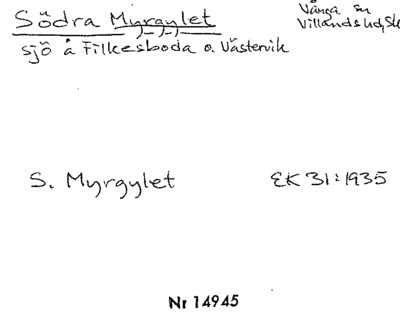 Södra Myrgylet
Vånga sn
Villands hd, Sk
sjö å Filkesboda o. Västervik
S. Myrgylet
EK 31:1935
Nr 14945